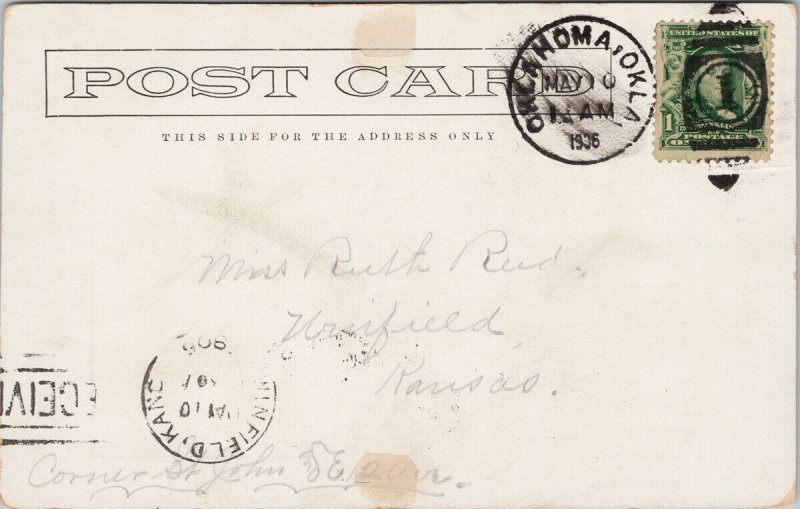 POST CARD
THIS SIDE FOR THE ADDRESS ONLY
OKLAHOMA, OKLA
MAY 10
AM
1906
UNITED STATES OF
1
FRANKLIN
POSTAGE
1
Miss Ruth Reed.
Winfield,
Kansas.
WINFIELD, KANS
MAY 10
906
ECEIV
Corner St John & E. 12 Ave.